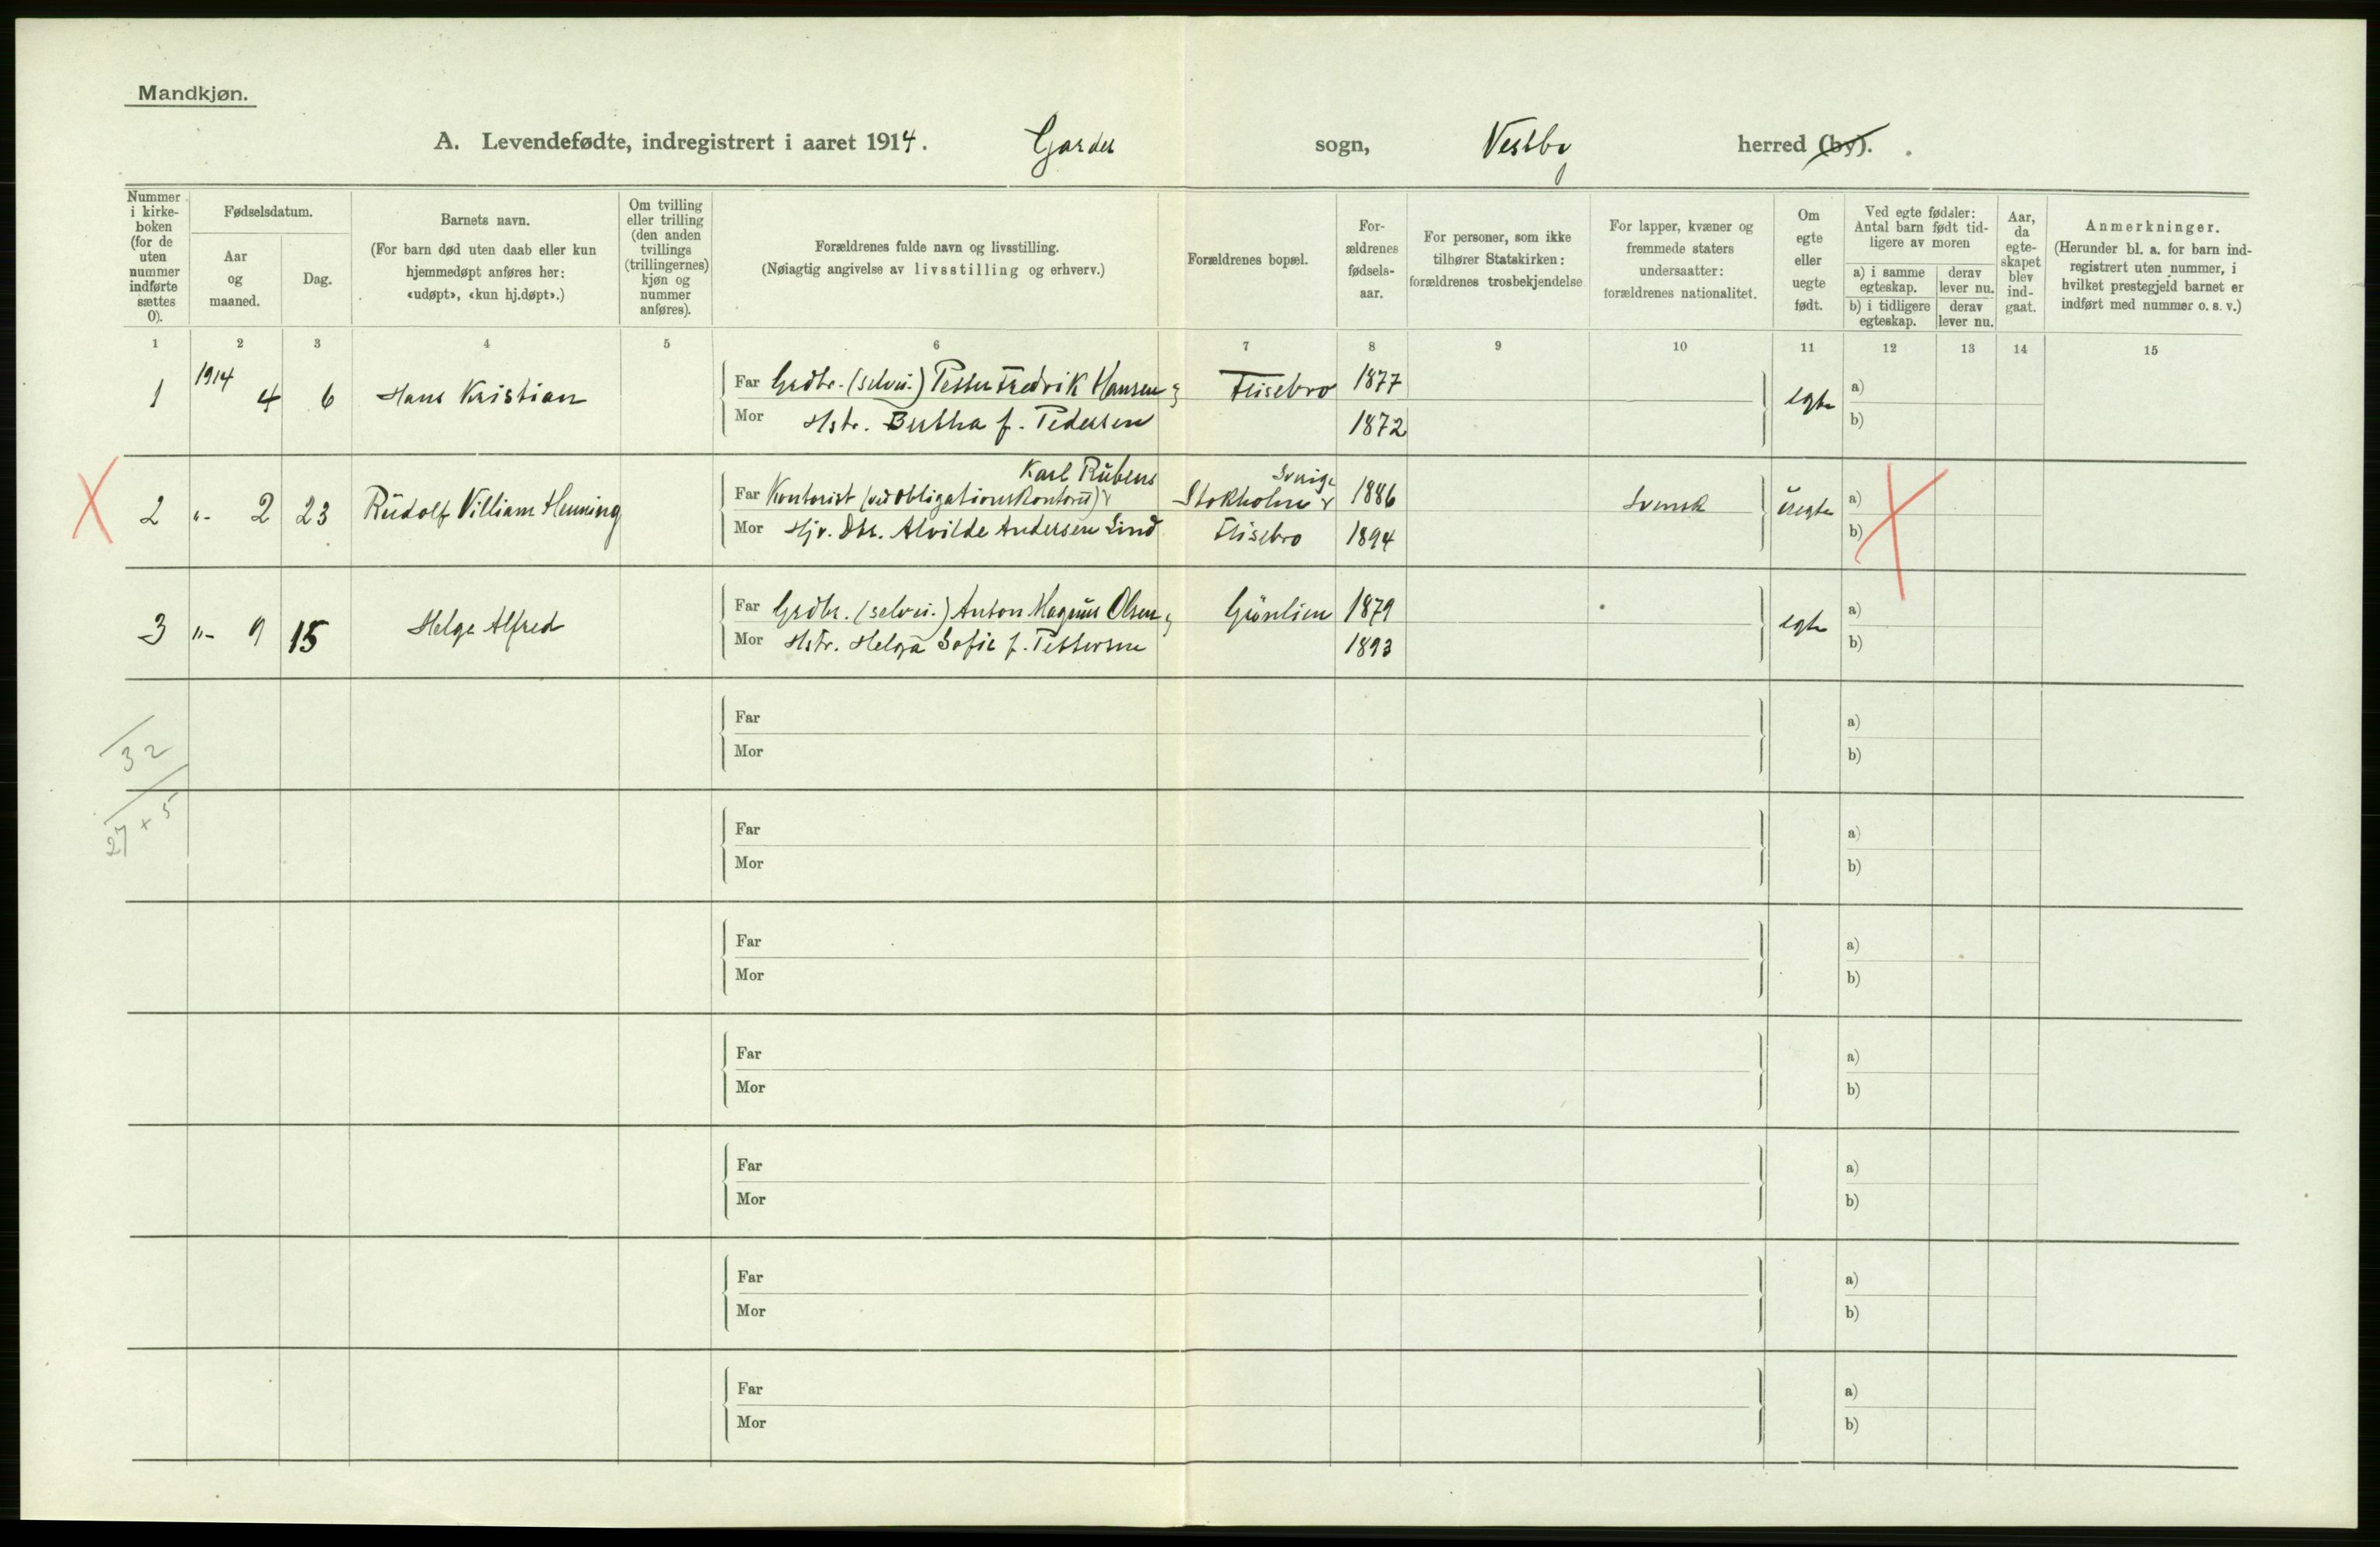 Mandkjøn.
A. Levendefødte, indregistrert i aaret 1914. Garder sogn, Vestby herred (by).
Nummer i kirkeboken (for de uten nummer indførte sættes 0).
Fødselsdatum.
Aar og maaned.
Dag.
Barnets navn.
(For barn død uten daab eller kun hjemmedøpt anføres her: «udøpt», «kun hj.døpt».)
Om tvilling eller trilling (den anden tvillings (trillingernes) kjøn og nummer anføres).
Forældrenes fulde navn og livsstilling.
(Nøiagtig angivelse av livsstilling og erhverv.)
Forældrenes bopæl.
Forældrenes fødselsaar.
For personer, som ikke tilhører Statskirken: forældrenes trosbekjendelse
For lapper, kvæner og fremmede staters undersaatter: forældrenes nationalitet.
Om egte eller uegte født.
Ved egte fødsler: Antal barn født tidligere av moren
a) i samme egteskap. derav lever nu.
b) i tidligere egteskap. derav lever nu.
Aar, da egteskapet blev indgaat.
Anmerkninger.
(Herunder bl. a. for barn indregistrert uten nummer, i hvilket prestegjeld barnet er indført med nummer o. s. v.)
1 2 3 4 5 6 7 8 9 10 11 12 13 14 15
1 1914 4 6 Hans Kristian Far Grdbr. (selvei.) Petter Fredrik Hansen & Flisebro 1877 egte a)
Mor Hstr. Bertha f. Pedersen 1872 b)
Karl Rubens Sverige
2 "- 2 23 Rudolf Villiam Henning Far Kontorist (ved obligationskontoret) & Stokholm & 1886 Svensk uegte a)
Mor Hjv. Dtr. Alvilde Andersen Lind Flisebro 1894 b)
3 "- 9 15 Helge Alfred Far Grdbr. (selvei.) Anton Magnus Olsen & Grönlien 1879 egte a)
Mor Hstr. Helga Sofie f. Pettersen 1893 b)
Far a)
Mor b)
32
Far a)
Mor b)
27 + 5
Far a)
Mor b)
Far a)
Mor b)
Far a)
Mor b)
Far a)
Mor b)
Far a)
Mor b)